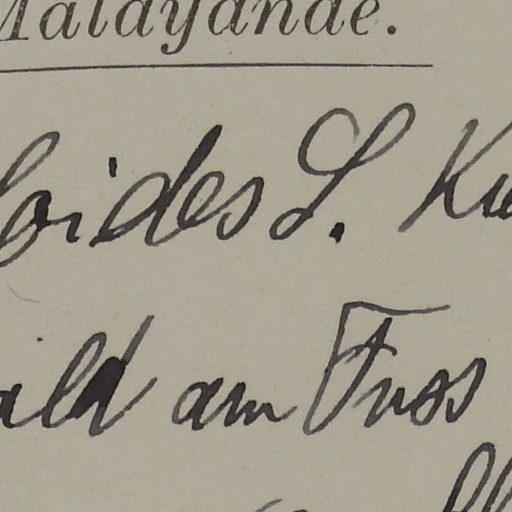 Malayande.
oides L. Ku
ald am Fuss